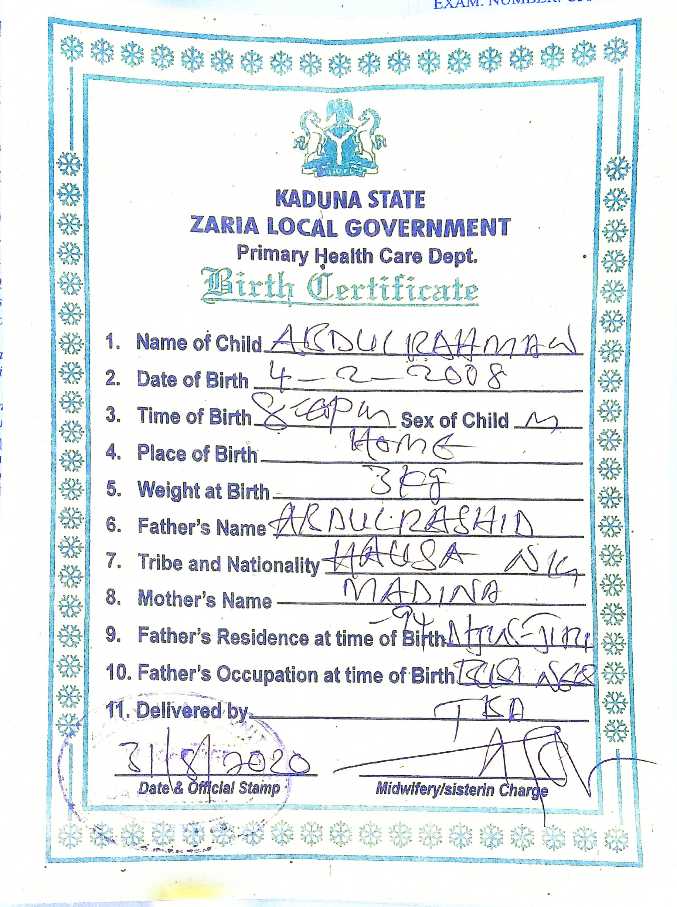 EXAM. NUMBER:
KADUNA STATE
ZARIA LOCAL GOVERNMENT
Primary Health Care Dept.
Birth Certificate
1. Name of Child ABDULRAHMAN
2. Date of Birth 4-2-2008
3. Time of Birth Sex of Child M
4. Place of Birth HOME
5. Weight at Birth 3kg
6. Father's Name ABDULRASHID
7. Tribe and Nationality HAUSA NIG
8. Mother's Name MADINA
9. Father's Residence at time of Birth
10. Father's Occupation at time of Birth
11. Delivered by TBA
31/8/2020
Date & Official Stamp Midwifery/sisterin Charge